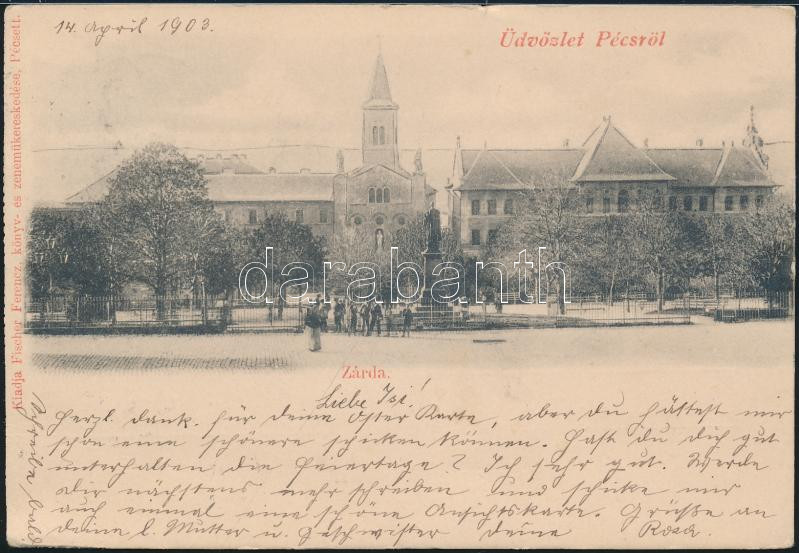 14. April 1903.
Üdvözlet Pécsről
Kiadja Fischer Ferencz, könyv- és zeneműkereskedése, Pécsett.
darabanth
Zárda.
Liebe Isi!
Herzl. dank. für deine Oster Karte, aber du hättest mir
schon eine schönere schicken können. Hast du dich gut
unterhalten die Feiertage? Ich sehr gut. Werde
dir nächstens mehr schreiben und schicke mir
auch einmal eine schöne Ansichtskarte. Grüße an
deine l. Mutter u. Geschwister deine Rosa.
bald